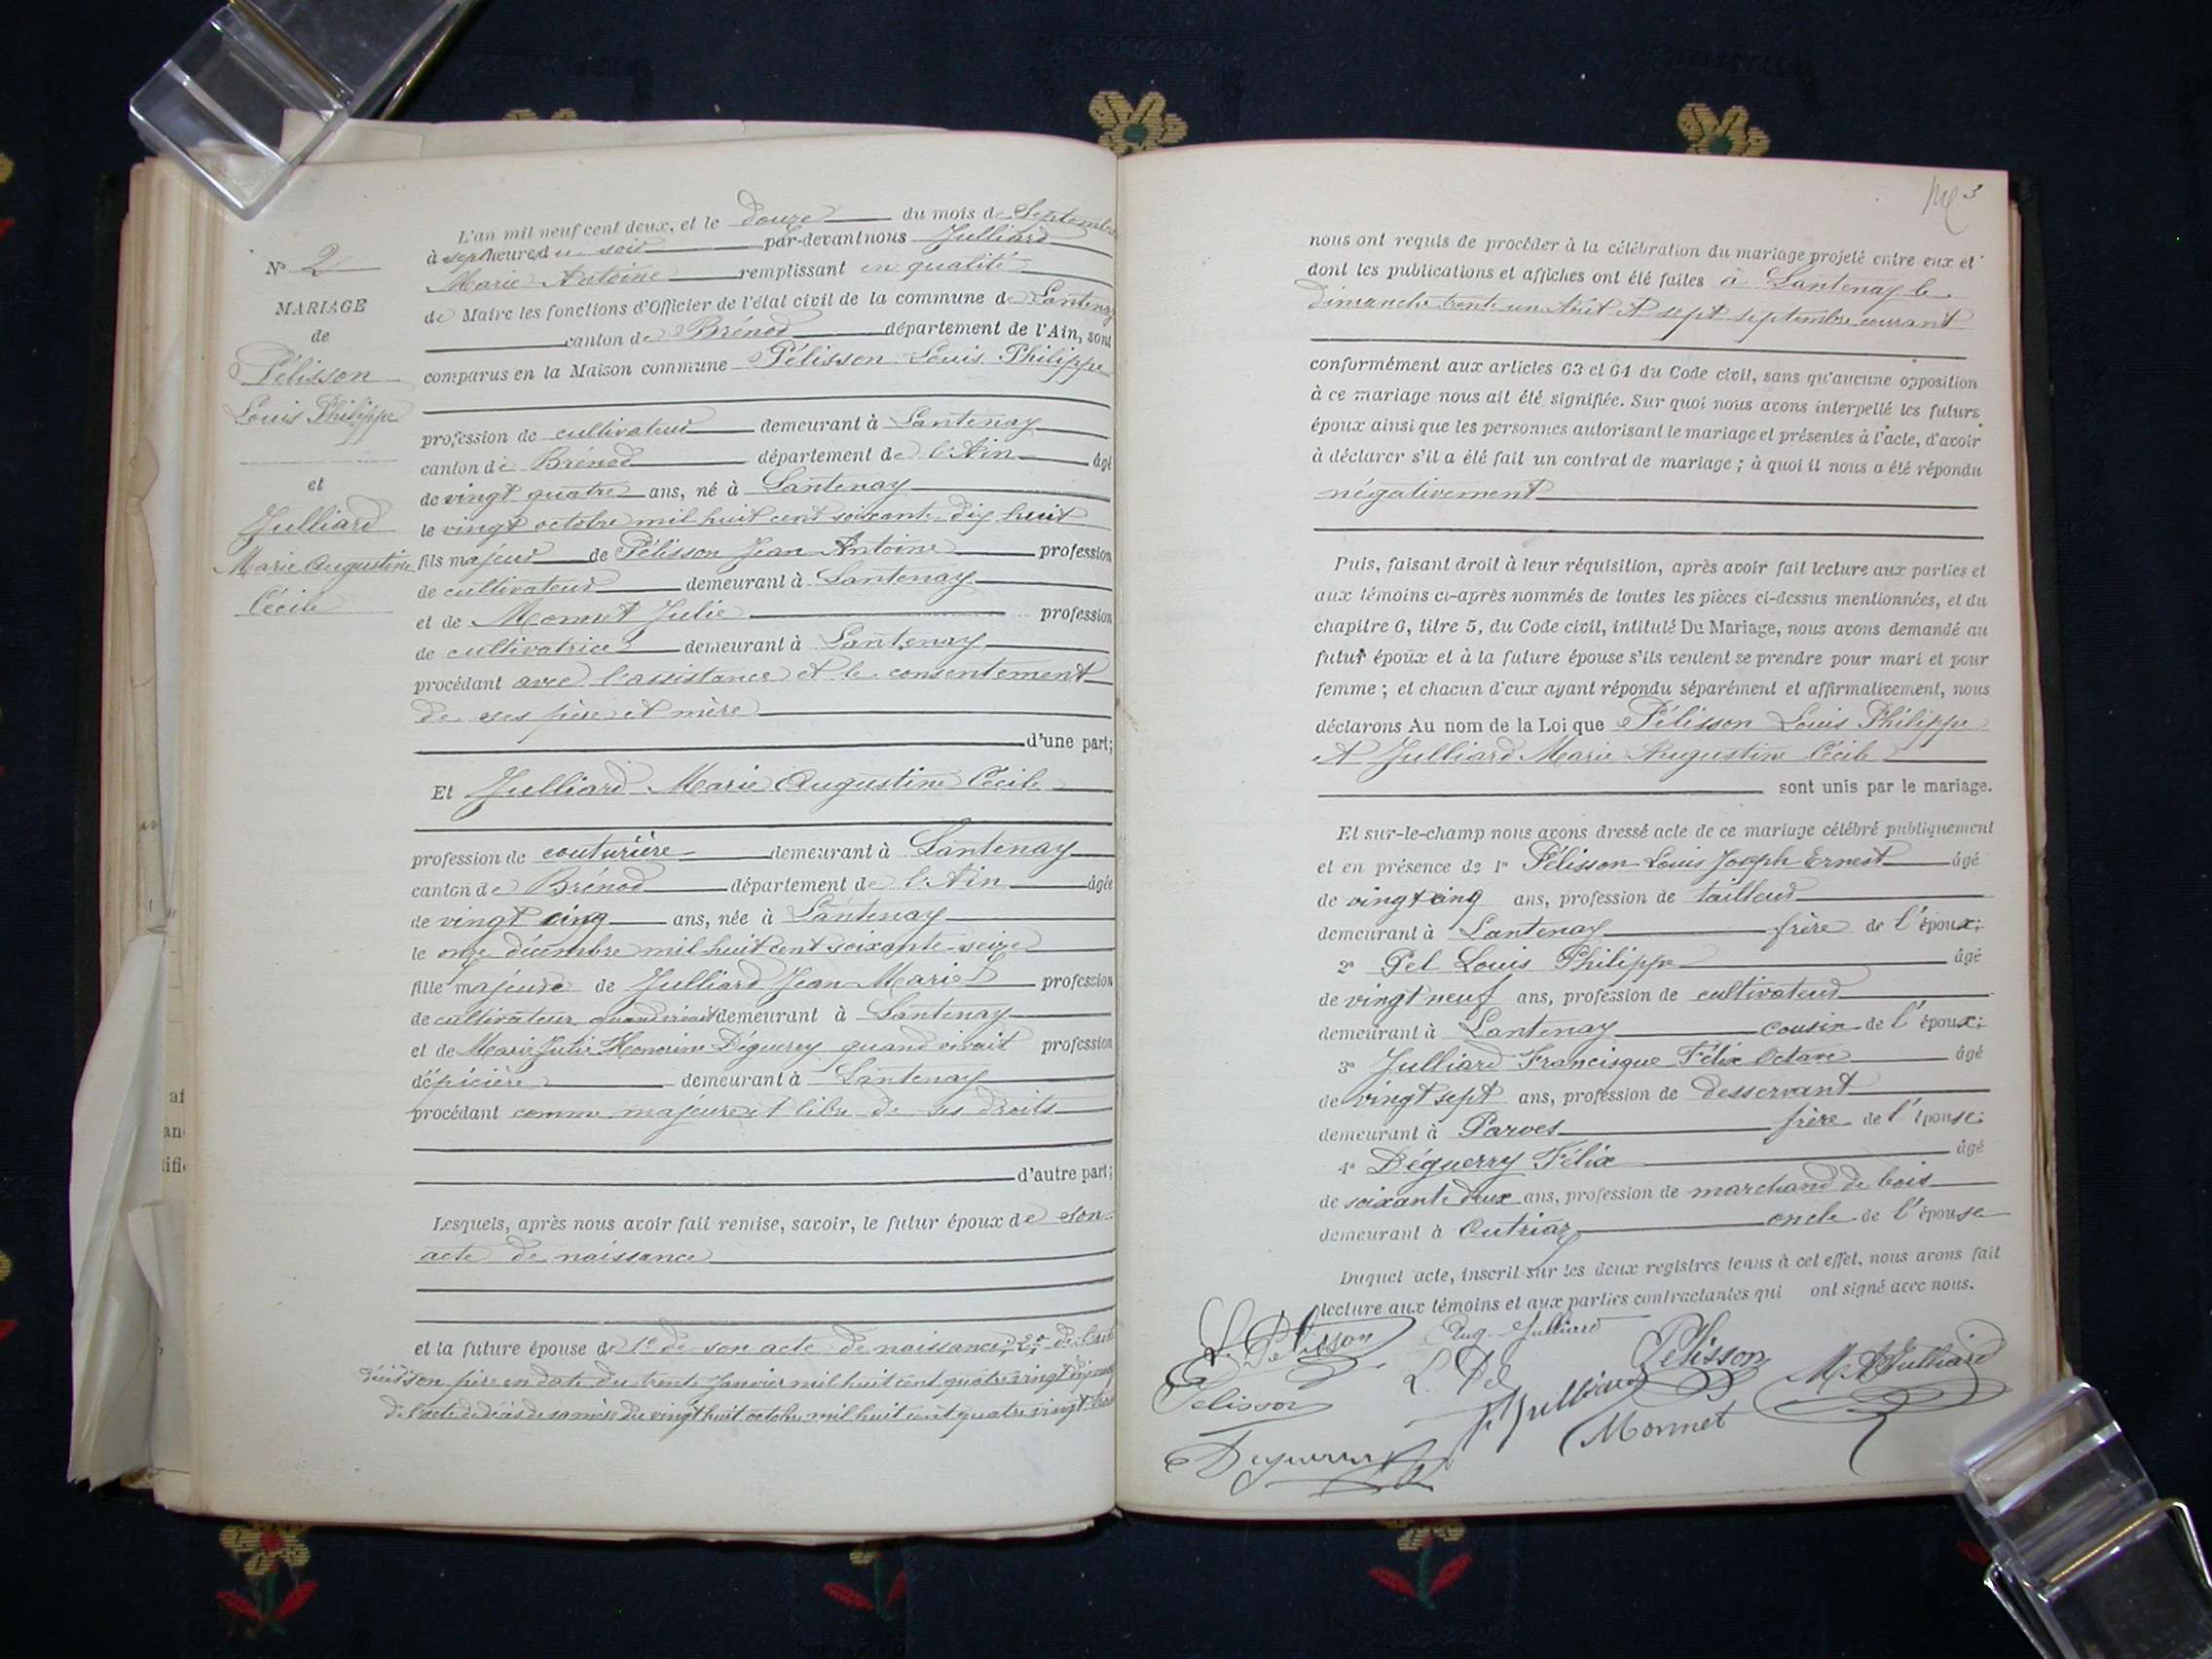 L'an mil neuf cent deux, et le douze du mois de Septembre
à sept heures du soir par-devant nous Julliard
Marie Antoine remplissant en qualité
de Maire les fonctions d'Officier de l'état civil de la commune de Lantenay
canton de Brénod département de l'Ain, sont
comparus en la Maison commune Pélisson Louis Philippe
profession de cultivateur demeurant à Lantenay
canton de Brénod département de l'Ain âgé
de vingt quatre ans, né à Lantenay
le vingt octobre mil huit cent soixante dix huit
fils majeur de Pélisson Jean Antoine profession
de cultivateur demeurant à Lantenay
et de Monnet Julie profession
de cultivatrice demeurant à Lantenay
procédant avec l'assistance et le consentement
de ses père et mère
d'une part;
Et Julliard Marie Augustine Cécile
profession de couturière demeurant à Lantenay
canton de Brénod département de l'Ain âgée
de vingt cinq ans, née à Lantenay
le onze décembre mil huit cent soixante-seize
fille majeure de Julliard Jean Marie profession
de cultivateur quand vivait demeurant à Lantenay
et de Marie Julie Honorine Déguerry quand vivait profession
d'épicière demeurant à Lantenay
procédant comme majeure et libre de ses droits
d'autre part;
Lesquels, après nous avoir fait remise, savoir, le futur époux de son
acte de naissance
et la future épouse de 1º de son acte de naissance; 2º de l'acte
de son père en date du trente Janvier mil huit cent quatre vingt
de l'acte de décès de sa mère du vingt huit octobre mil huit cent quatre vingt
Nº 2
MARIAGE
de
Pélisson
Louis Philippe
et
Julliard
Marie Augustine
Cécile
3
nous ont requis de procéder à la célébration du mariage projeté entre eux et
dont les publications et affiches ont été faites à Lantenay le
dimanche trente un Août et sept septembre courant
conformément aux articles 63 et 64 du Code civil, sans qu'aucune opposition
à ce mariage nous ait été signifiée. Sur quoi nous avons interpellé les futurs
époux ainsi que les personnes autorisant le mariage et présentes à l'acte, d'avoir
à déclarer s'il a été fait un contrat de mariage; à quoi il nous a été répondu
négativement
Puis, faisant droit à leur réquisition, après avoir fait lecture aux parties et
aux témoins ci-après nommés de toutes les pièces ci-dessus mentionnées, et du
chapitre 6, titre 5, du Code civil, intitulé Du Mariage, nous avons demandé au
futur époux et à la future épouse s'ils veulent se prendre pour mari et pour
femme; et chacun d'eux ayant répondu séparément et affirmativement, nous
déclarons Au nom de la Loi que Pélisson Louis Philippe
et Julliard Marie Augustine Cécile
sont unis par le mariage.
Et sur-le-champ nous avons dressé acte de ce mariage célébré publiquement
et en présence de 1º Pélisson Louis Joseph Ernest âgé
de vingt cinq ans, profession de tailleur
demeurant à Lantenay frère de l'époux;
2º Pel Louis Philippe âgé
de vingt neuf ans, profession de cultivateur
demeurant à Lantenay cousin de l'époux;
3º Julliard Francisque Félix Octave âgé
de vingt sept ans, profession de desservant
demeurant à Parves frère de l'épouse;
4º Déguerry Félix âgé
de soixante deux ans, profession de marchand de bois
demeurant à Outriaz oncle de l'épouse
Duquel acte, inscrit sur les deux registres tenus à cet effet, nous avons fait
lecture aux témoins et aux parties contractantes qui ont signé avec nous.
L. Pelisson Aug. Julliard Pélisson M. A. Julliard
Pelisson L. Pel Julliard Monnet
Deguerry